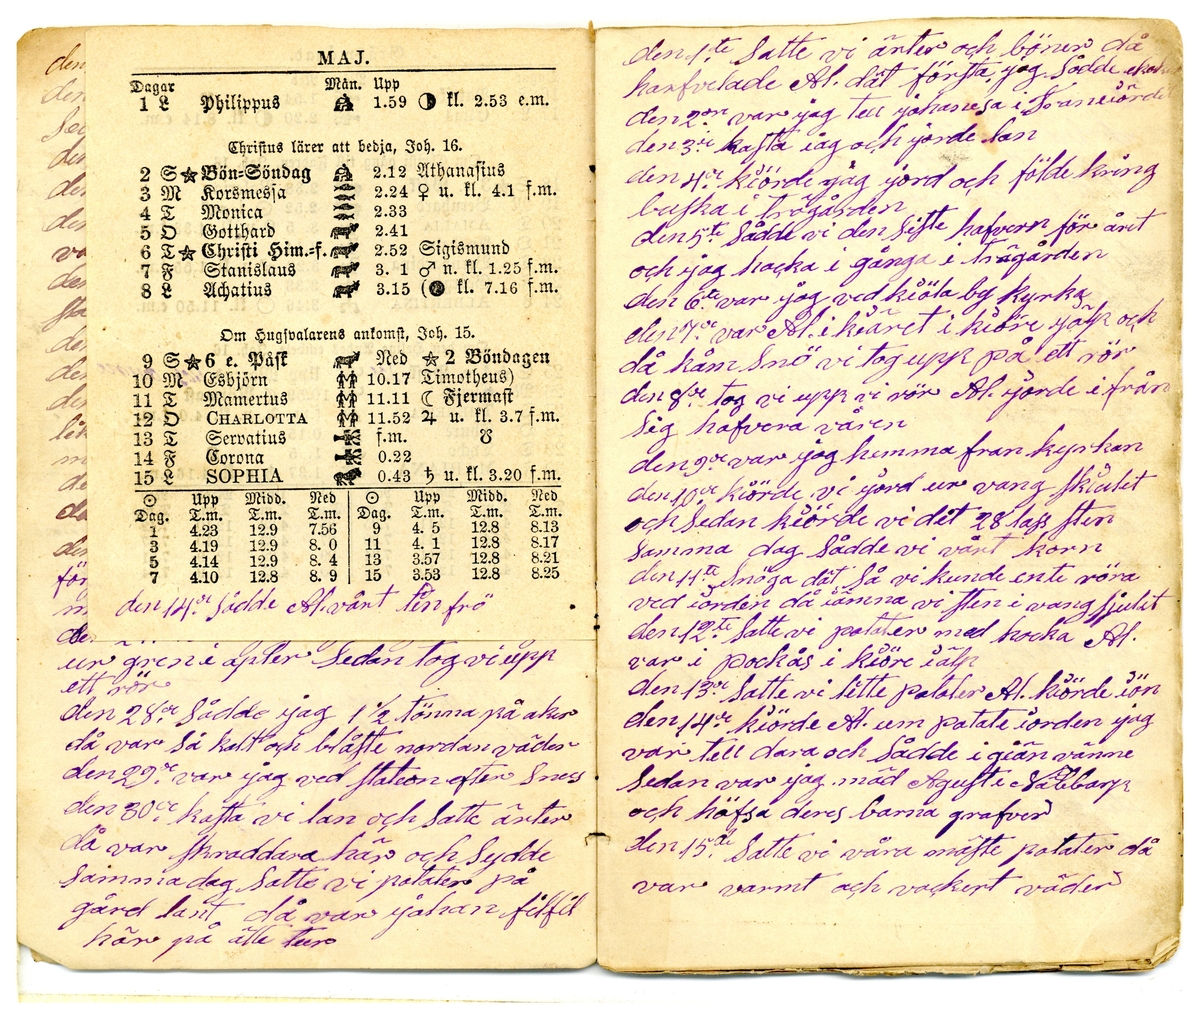 MAJ.
Dagar Mån. Upp
1 L Philippus 1.59 kl. 2.53 e.m.
Christus lärer att bedja, Joh. 16.
2 S Bön-Söndag 2.12 Athanasius
3 M Korsmessa 2.24 ♀ u. kl. 4.1 f.m.
4 T Monica 2.33
5 O Gotthard 2.41
6 T Christi Him.=f. 2.52 Sigismund
7 F Stanislaus 3. 1 ♂ n. kl. 1.25 f.m.
8 L Achatius 3.15 ( kl. 7.16 f.m.
Om Hugsvalarens ankomst, Joh. 15.
9 S 6 e. Påsk Ned 2 Böndagen
10 M Esbjörn 10.17 Timotheus)
11 T Mamertus 11.11 ☾ Fjermast
12 O CHARLOTTA 11.52 ♃ u. kl. 3.7 f.m.
13 T Servatius f.m. ☋
14 F Corona 0.22
15 L SOPHIA 0.43 ♄ u. kl. 3.20 f.m.
☉ Upp Midd. Ned ☉ Upp Midd. Ned
Dag. T.m. T.m. T.m. Dag. T.m. T.m. T.m.
1 4.23 12.9 7.56 9 4. 5 12.8 8.13
3 4.19 12.9 8. 0 11 4. 1 12.8 8.17
5 4.14 12.9 8. 4 13 3.57 12.8 8.21
7 4.10 12.8 8. 9 15 3.53 12.8 8.25
den 14de sådde Al. vårt lin frö
ur grené äpler sedan tog vi upp
ett rör
den 28de sådde jag 1 1/2 tönna på aker
då var så kalt och blåste nordan väder
den 29de var jag ved station efter Snes
den 30de kasta vi lan och satte ärter
då var skraddara här och sydde
samma dag satte vi potater på
gård lant då var johan filfil
här på åtte tur
den 1te satte vi ärter och böner då
harfvelade Al. dät första jag sådde
den 2dre var jag tell johanesa i
den 3de kasta jag och jorde lan
den 4de kiörde jag jord och földe kring
buska i trägården
den 5te sådde vi den siste hafvern för året
och jag hacka i gånga i trägården
den 6te var jag ved kiöla by kyrka
den 7de var Al. i kiäret i kiöre jälp och
då kåm snö vi tog upp på ett rör
den 8de tog vi upp vi rör Al. jorde i från
sig hafvera våren
den 9de var jag hemma fran kyrkan
den 10de kiörde vi jord ur vang skiutet
och sedan kiörde vi dit 28 lass sten
samma dag sådde vi vårt korn
den 11te snöga dät så vi kunde ente röra
ved jorden då jämna vi sten i vang sjutet
den 12te satte vi potater med hacka Al.
var i pockås i kiöre jälp
den 13de satte vi litte potater Al. kiörde iön
den 14de kiörde Al. um potate iorden jag
var tell dara och sådde i giän vänne
sedan var jag måd Aguste i Nabbarp
och höfsa deres barna grafver
den 15de satte vi våra mäste potater då
var varmt och vackert väder